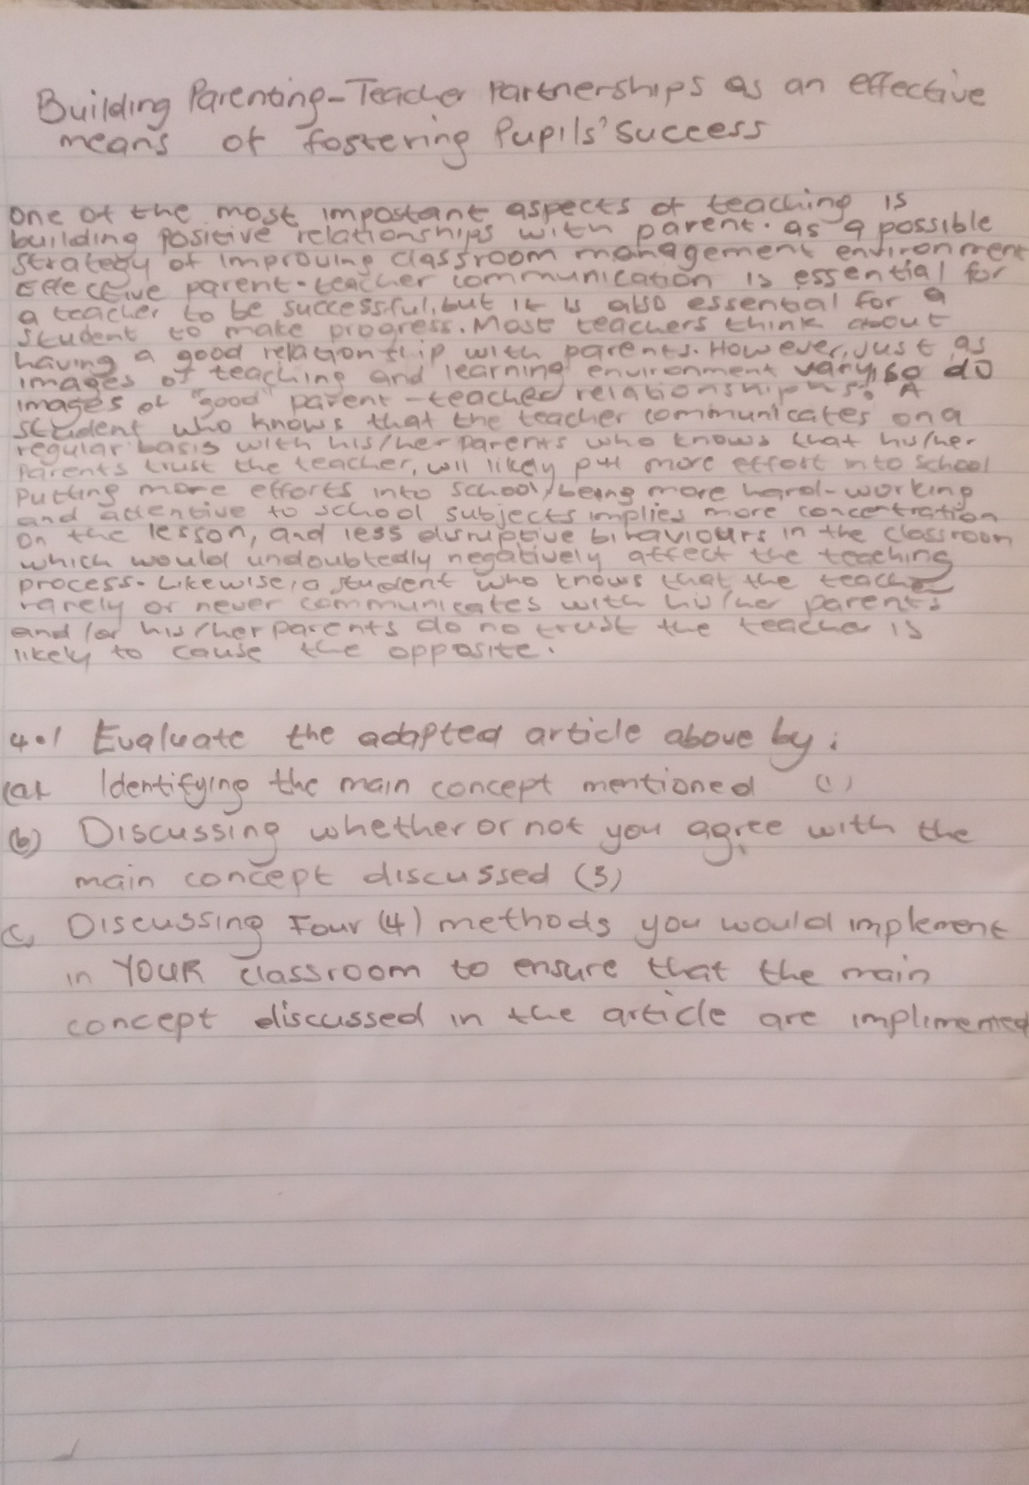 Building Parenting-Teacher Partnerships as an effective
means of fostering Pupils' Success
One of the most important aspects of teaching is
building positive relationships with parent. as a possible
strategy of improving classroom management environment
Effective parent-teacher communication is essential for
a teacher to be successful, but it is also essential for a
student to make progress. Most teachers think about
having a good relationship with parents. However, just as
images of teaching and learning environment vary, so do
images of "good" parent-teached relationships. A
student who knows that the teacher communicates on a
regular basis with his/her parents who knows that his/her
Parents trust the teacher, will likely put more effort into school
Putting more efforts into school, being more hard-working
and attentive to school subjects implies more concentration
on the lesson, and less disruptive bihaviours in the classroom
which would undoubtedly negatively affect the teaching
process. Likewise, a student who knows that the teacher
rarely or never communicates with his/her parents
and/or his/her parents do no trust the teacher is
likely to cause the opposite.
4.1 Evaluate the adapted article above by:
(a) Identifying the main concept mentioned (1)
(b) Discussing whether or not you agree with the
main concept discussed (3)
c) Discussing Four (4) methods you would implement
in YOUR classroom to ensure that the main
concept discussed in the article are implimented